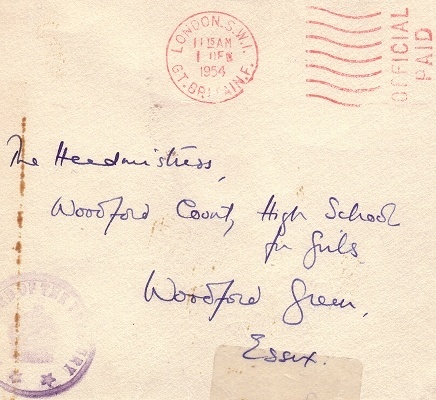 LONDON.S.W.1.
11 15 AM
1 FEB
1954
GT. BRITAIN.F.
OFFICIAL
PAID
The Headmistress,
Woodford County High School
for Girls
Woodford Green,
Essex.
OF THE